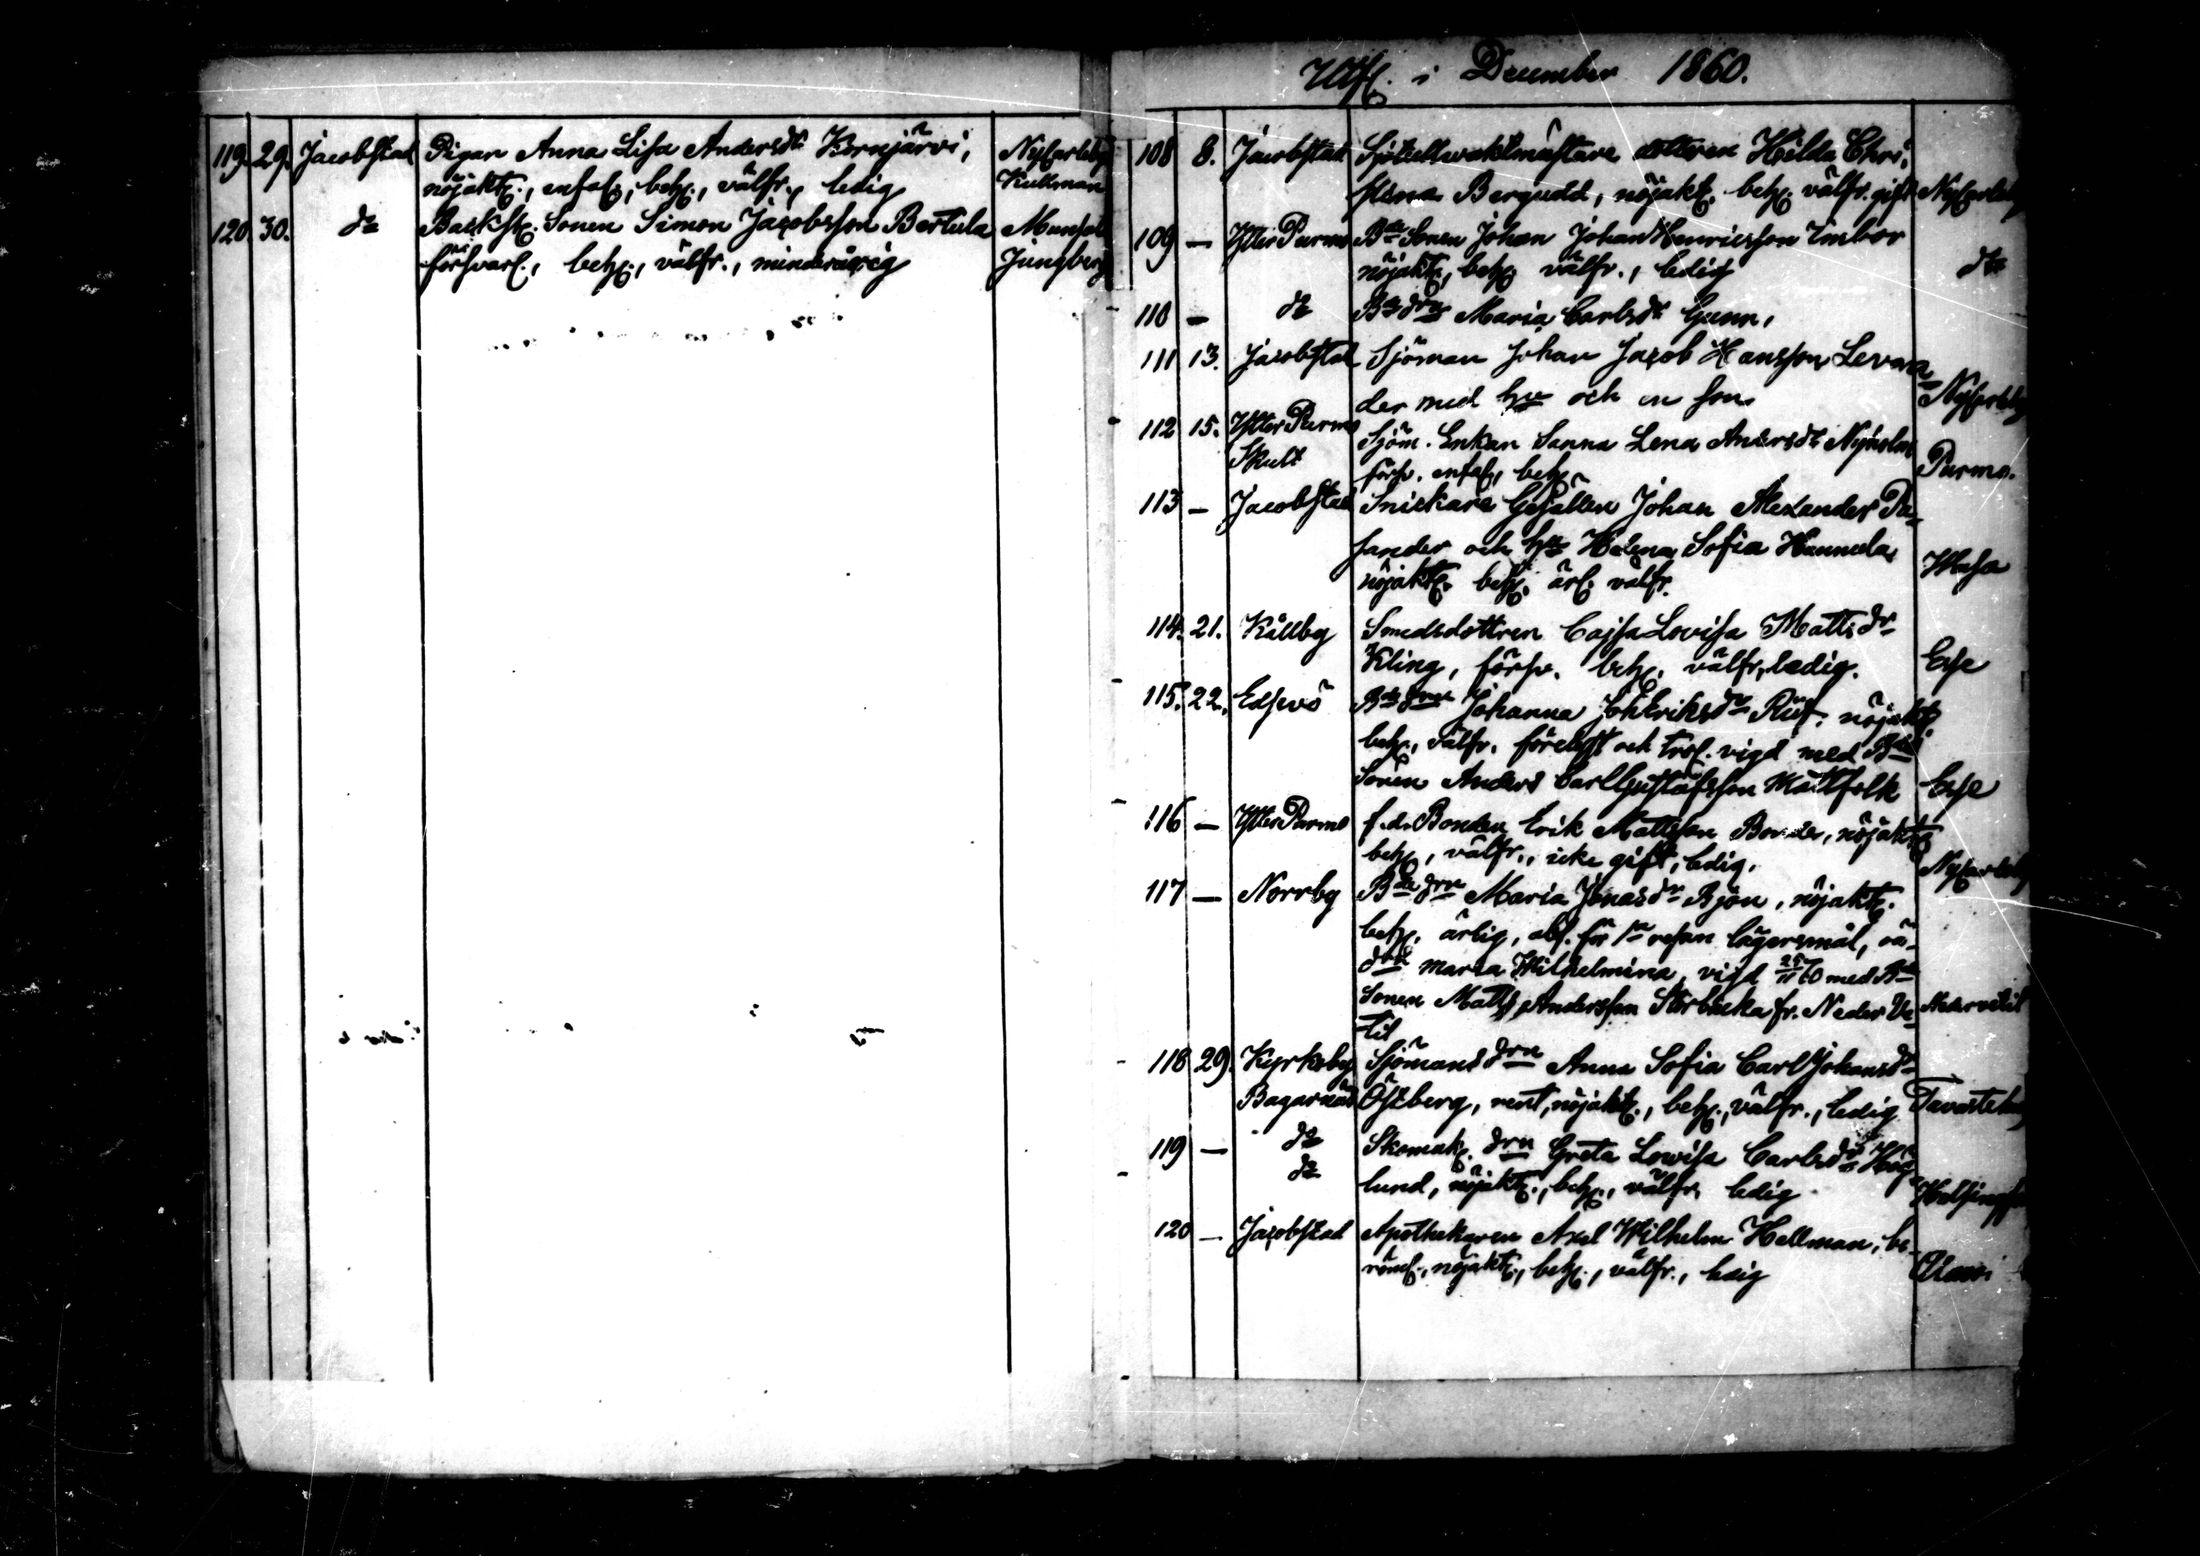 119. 29. Jacobstad Pigan Anna Lisa Andersdr Kornjärvi, NyCarleby
nöjaktl., enfal., behl., välfr., ledig Kullman
120. 30. do Backst. Sonen Simon Jacobsson Bertula Munsala
försvarl., behl., välfr., minderårig Jungberg
Utfl. i December 1860.
108 8. Jacobstad Sjötullvaktmästare dottren Hilda Chri-
stina Bergudd, nöjakt. behl. välfr. gift NyCarleby
109 — Ytter Purmo Bde Sonen Johan Johan Henricsson Imbor
nöjaktl., behl. välfr., ledig do
110 — do Bde drn Maria Carlsdr Gunn,
111 13. Jacobstad Sjöman Johan Jacob Hansson Levan-
der med hu och en son NyCarleby
112 15. Ytter Purmo Sjöm. Enkan Sanna Lena Andersdr Nyholm
Skult försv. enfal., behl. Purmo.
113 — Jacobstad Snickare Gesällen Johan Alexander Pa-
sander och hu Helena Sofia Hannula
nöjaktl. behl. ärl. välfr. Wasa
114. 21. Kållby Smedsdottren Cajsa Lovisa Matts dr
Kling, försv. behl. välfr, ledig. Esse
115. 22. Edsevö Bde drn Johanna Joh Eriksdr Rüf. nöjaktl.
behl., välfr. förelyst och trol. vigd med Bde
Sonen Anders Carl Gustafsson Mattfolk Esse
116 — Ytter Purmo f.d. Bonden Erik Mattsson Bonde, nöjaktl
behl, välfr., icke gift, ledig. NyCarleby
117 — Norrby Bde drn Maria Jonasdr Björn, nöjaktl.
behl. ärlig, abs. för 1a resan lägersmål, oä.
drn Maria Wilhelmina, vigd 25/11 60 med Bde
Sonen Matts Andersson Storbacka fr. Neder Ve- Nedervetil
til
118 29. Kyrkoby Sjömans drn Anna Sofia Carl Johansdr
Bagarnäs Östberg, vent, nöjaktl., behl., välfr., ledig Tavastehus
119 — do Skomak. drn Greta Lovisa Carlsdr Hög-
do lund, nöjaktl., behl., välfr, ledig Helsingfors
120 — Jacobstad Apothekaren Axel Wilhelm Hellman, be-
röml., nöjaktl., behl., välfr., ledig